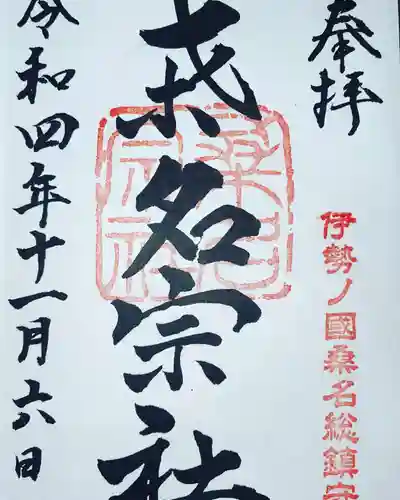 奉拝
伊勢ノ國桑名総鎮守
桑名宗社
令和四年十一月六日